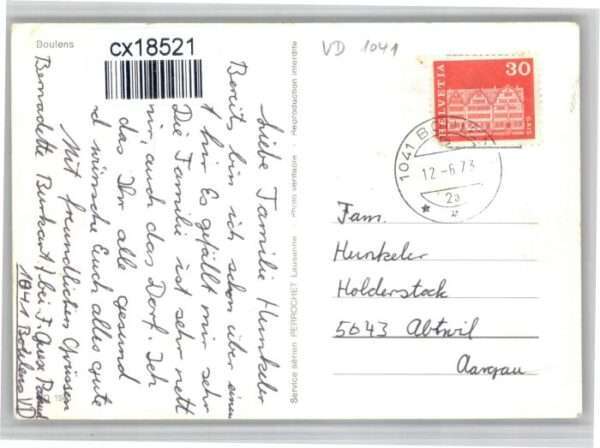 Boulens
cx18521
Liebe Familie Hunkeler
Bereits bin ich schon über einen
t hier. Es gefällt mir sehr
Die Familie ist sehr nett
mir, auch das Dorf. Ich
das Ihr alle gesund
d wünsche Euch alles gute
Mit freundlichen Grüssen
Bernadette Burkart bei F.
1041 Boulens VD
Service aérien PERROCHET Lausanne - Photo véritable - Reproduction interdite
VD 1041
HELVETIA 30
GAIS
1041 B
12-6.73
Fam.
Hunkeler
Holderstock
5643 Abtwil
Aargau